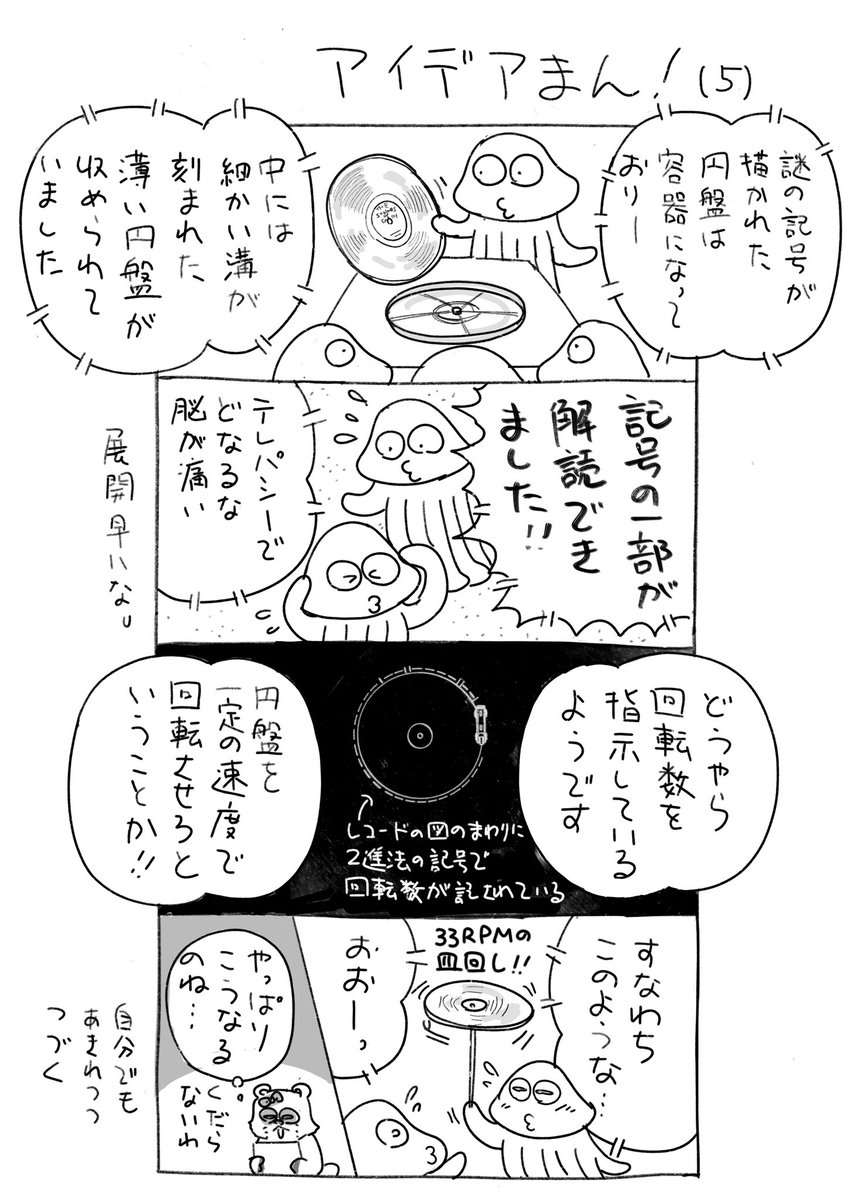 アイデアまん!(5)
謎の記号が
描かれた
円盤は
容器になって
おりー
中には
細かい溝が
刻まれた
薄い円盤が
収められて
いました
記号の一部が
解読でき
ました!!
テレパシーで
どなるな
脳が痛い
展開早いな
どうやら
回転数を
指示している
ようです
円盤を
一定の速度で
回転させろと
いうことか!!
↑
レコードの図のまわりに
2進法の記号で
回転数が記されている
すなわち
このような…
33RPMの
皿回し!!
おおーっ
やっぱり
こうなる
のね…
くだら
ないわ
自分でも
あきれつつ
つづく